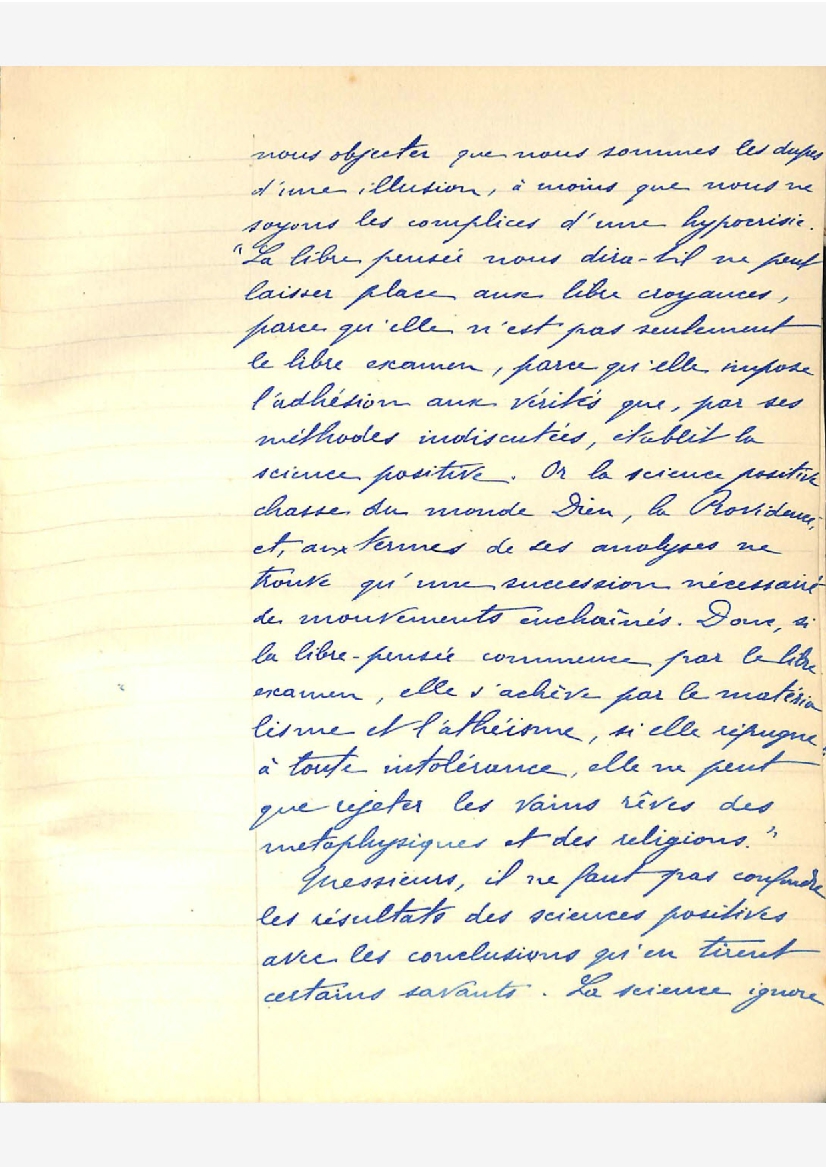 nous objecter que nous sommes les dupes
d'une illusion, à moins que nous ne
soyons les complices d'une hypocrisie.
"La libre pensée nous dira-t-il ne peut
laisser place aux libre croyances,
parce qu'elle n'est pas seulement
le libre examen, parce qu'elle impose
l'adhésion aux vérités que, par ses
méthodes indiscutées, établit la
science positive. Or la science positive
chasse du monde Dieu, la Providence,
et, aux termes de ses analyses ne
trouve qu'une succession nécessaire
de mouvements enchaînés. Donc, si
la libre-pensée commence par le libre
examen, elle s'achève par le matéria
lisme et l'athéisme, si elle répugne
à toute intolérance, elle ne peut
que rejeter les vains rêves des
metaphysiques et des religions."
Messieurs, il ne faut pas confondre
les résultats des sciences positives
avec les conclusions qu'en tirent
certains savants. La science ignore